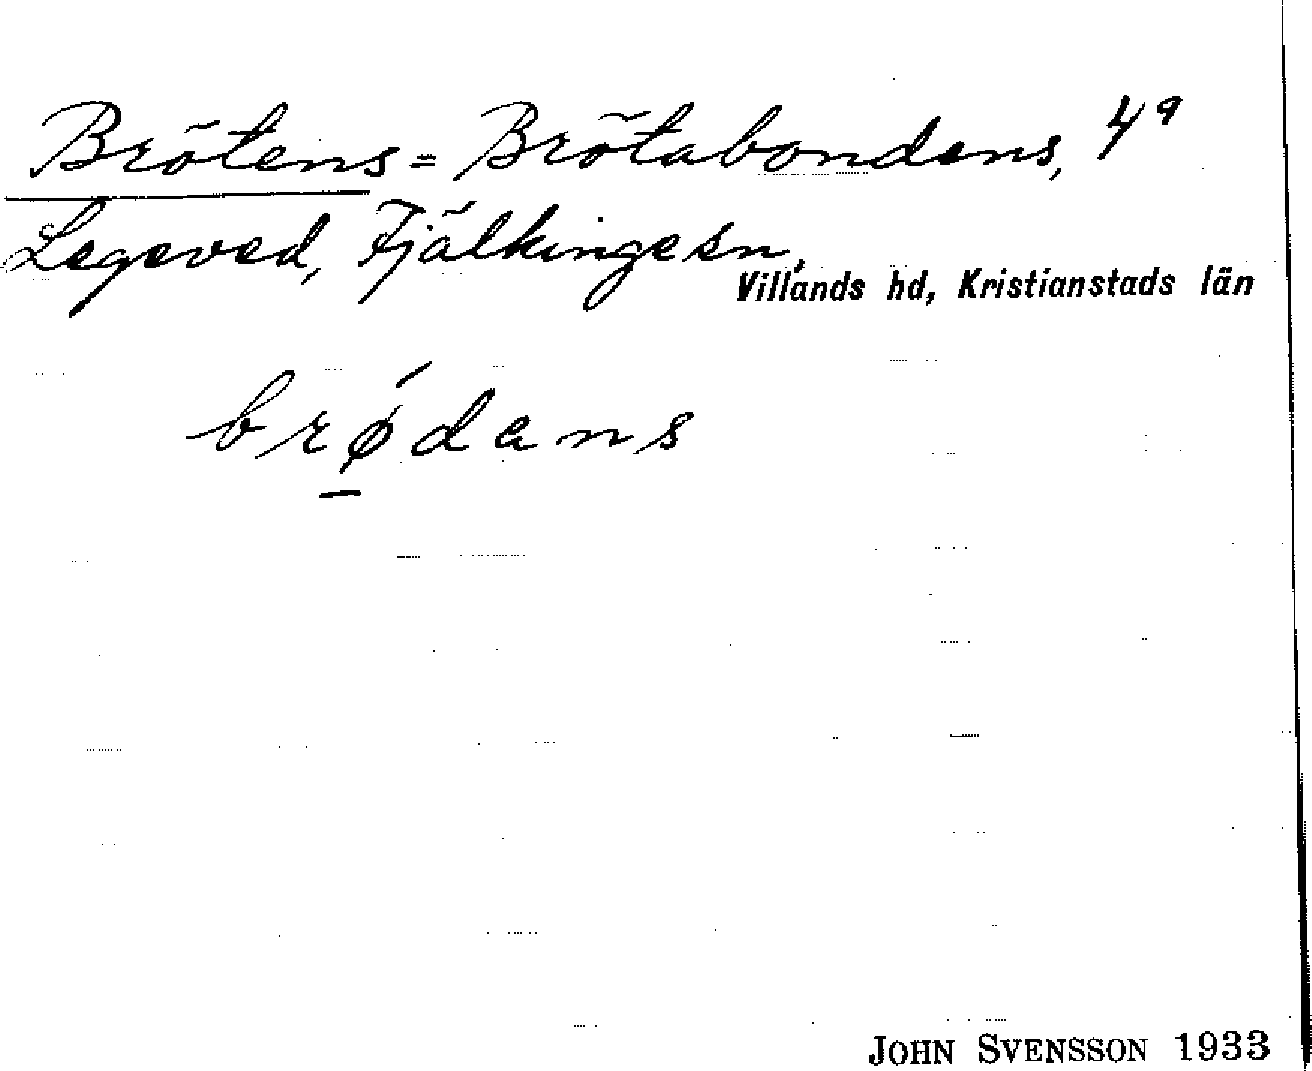 Brötens = Brötabondens, 4a
Legeved, Fjälkinge sn,
Villands hd, Kristianstads län
brǿdans
JOHN SVENSSON 1933